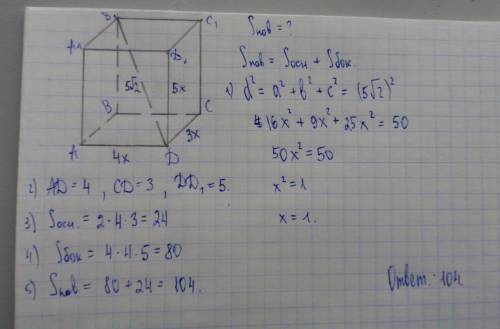 B₁
C₁
A₁
D₁
5√2
5x
B
C
3x
A
4x
D
Sпов = ?
Sпов = Sосн + Sбок
1) d² = a² + b² + c² = (5√2)²
16x² + 9x² + 25x² = 50
50x² = 50
x² = 1
x = 1.
2) AD = 4 , CD = 3 , DD₁ = 5.
3) Sосн. = 2·4·3 = 24
4) Sбок = 4·4·5 = 80
5) Sпов = 80 + 24 = 104.
Ответ: 104